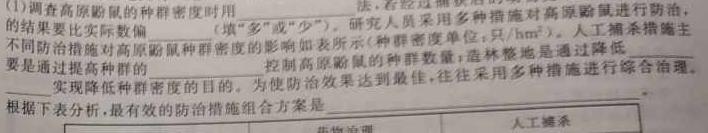 (1)调查高原鼢鼠的种群密度时用________法,若经过捕获
的结果要比实际数偏________(填“多”或“少”)。研究人员采用多种措施对高原鼢鼠进行防治,
不同防治措施对高原鼢鼠种群密度的影响如表所示(种群密度单位:只/hm²)。人工捕杀措施主
要是通过提高种群的________控制高原鼢鼠的种群数量;造林整地是通过降低________
____实现降低种群密度的目的。为使防治效果达到最佳,往往采用多种措施进行综合治理。
根据下表分析,最有效的防治措施组合方案是________。
药物治理 人工捕杀